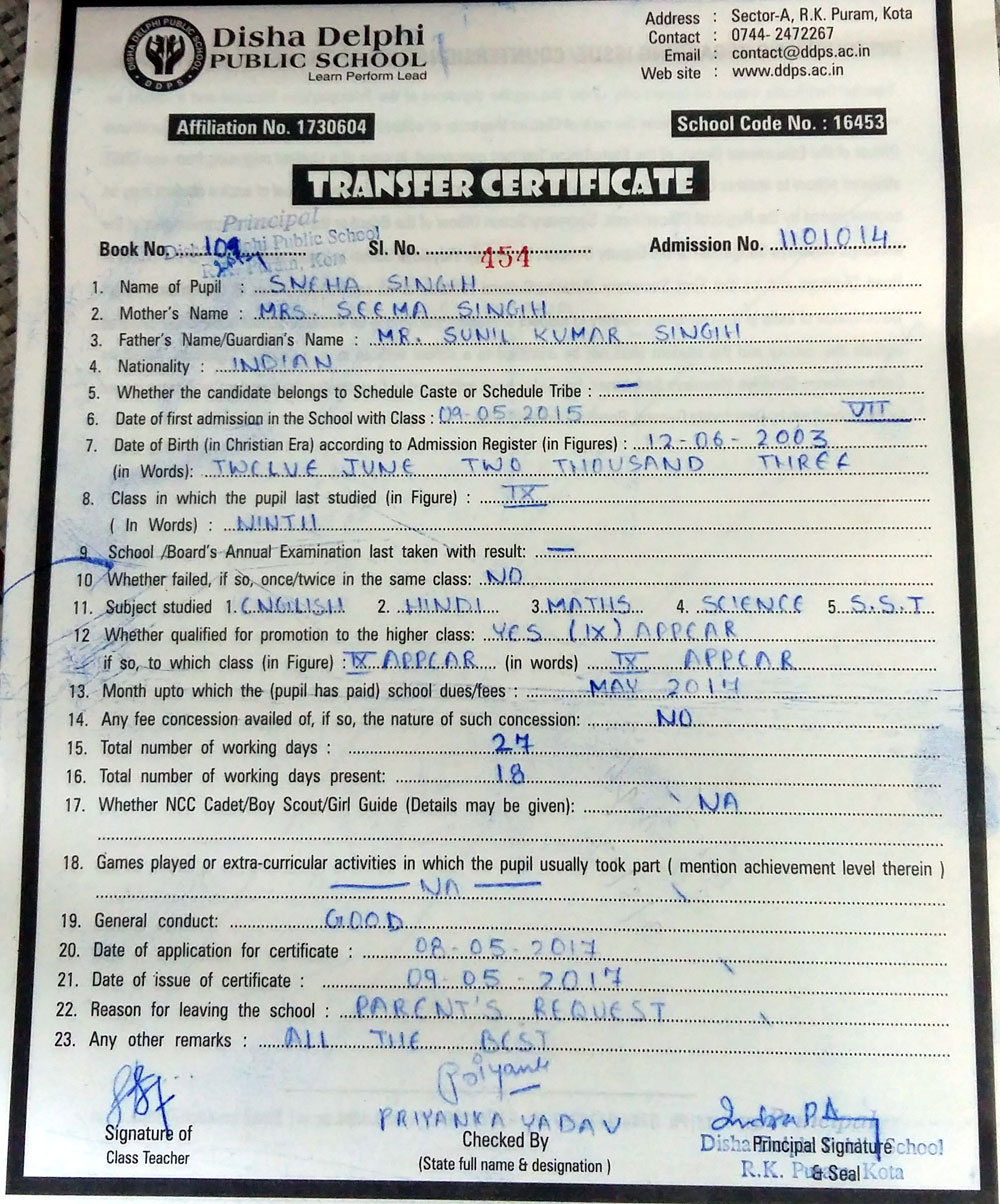 Disha Delphi
PUBLIC SCHOOL
Learn Perform Lead
DISHA DELPHI PUBLIC SCHOOL
DDPS
Address : Sector-A, R.K. Puram, Kota
Contact : 0744- 2472267
Email : contact@ddps.ac.in
Web site : www.ddps.ac.in
Affiliation No. 1730604
School Code No. : 16453
TRANSFER CERTIFICATE
Principal
Disha Delphi Public School
R.K. Puram, Kota
Book No. 109 Sl. No. 454 Admission No. 1101014
1. Name of Pupil : SNEHA SINGH
2. Mother's Name : MRS. SEEMA SINGH
3. Father's Name/Guardian's Name : MR. SUNIL KUMAR SINGH
4. Nationality : INDIAN
5. Whether the candidate belongs to Schedule Caste or Schedule Tribe : —
6. Date of first admission in the School with Class : 09-05-2015 VII
7. Date of Birth (in Christian Era) according to Admission Register (in Figures) : 12-06-2003
(in Words): TWELVE JUNE TWO THOUSAND THREE
8. Class in which the pupil last studied (in Figure) : IX
( In Words) : NINTH
9. School /Board's Annual Examination last taken with result: —
10 Whether failed, if so, once/twice in the same class: NO
11. Subject studied 1. ENGLISH 2. HINDI 3. MATHS 4. SCIENCE 5. S.S.T
12 Whether qualified for promotion to the higher class: YES (IX) APPEAR
if so, to which class (in Figure) : IX APPEAR (in words) IX APPEAR
13. Month upto which the (pupil has paid) school dues/fees : MAY 2017
14. Any fee concession availed of, if so, the nature of such concession: NO
15. Total number of working days : 27
16. Total number of working days present: 18
17. Whether NCC Cadet/Boy Scout/Girl Guide (Details may be given): NA
18. Games played or extra-curricular activities in which the pupil usually took part ( mention achievement level therein )
— NA —
19. General conduct: GOOD
20. Date of application for certificate : 08-05-2017
21. Date of issue of certificate : 09-05-2017
22. Reason for leaving the school : PARENT'S REQUEST
23. Any other remarks : ALL THE BEST
Priyanka
PRIYANKA YADAV
Signature of
Class Teacher
Checked By
(State full name & designation )
Principal
Disha Delphi Public School
R.K. Puram, Kota
Principal Signature
& Seal